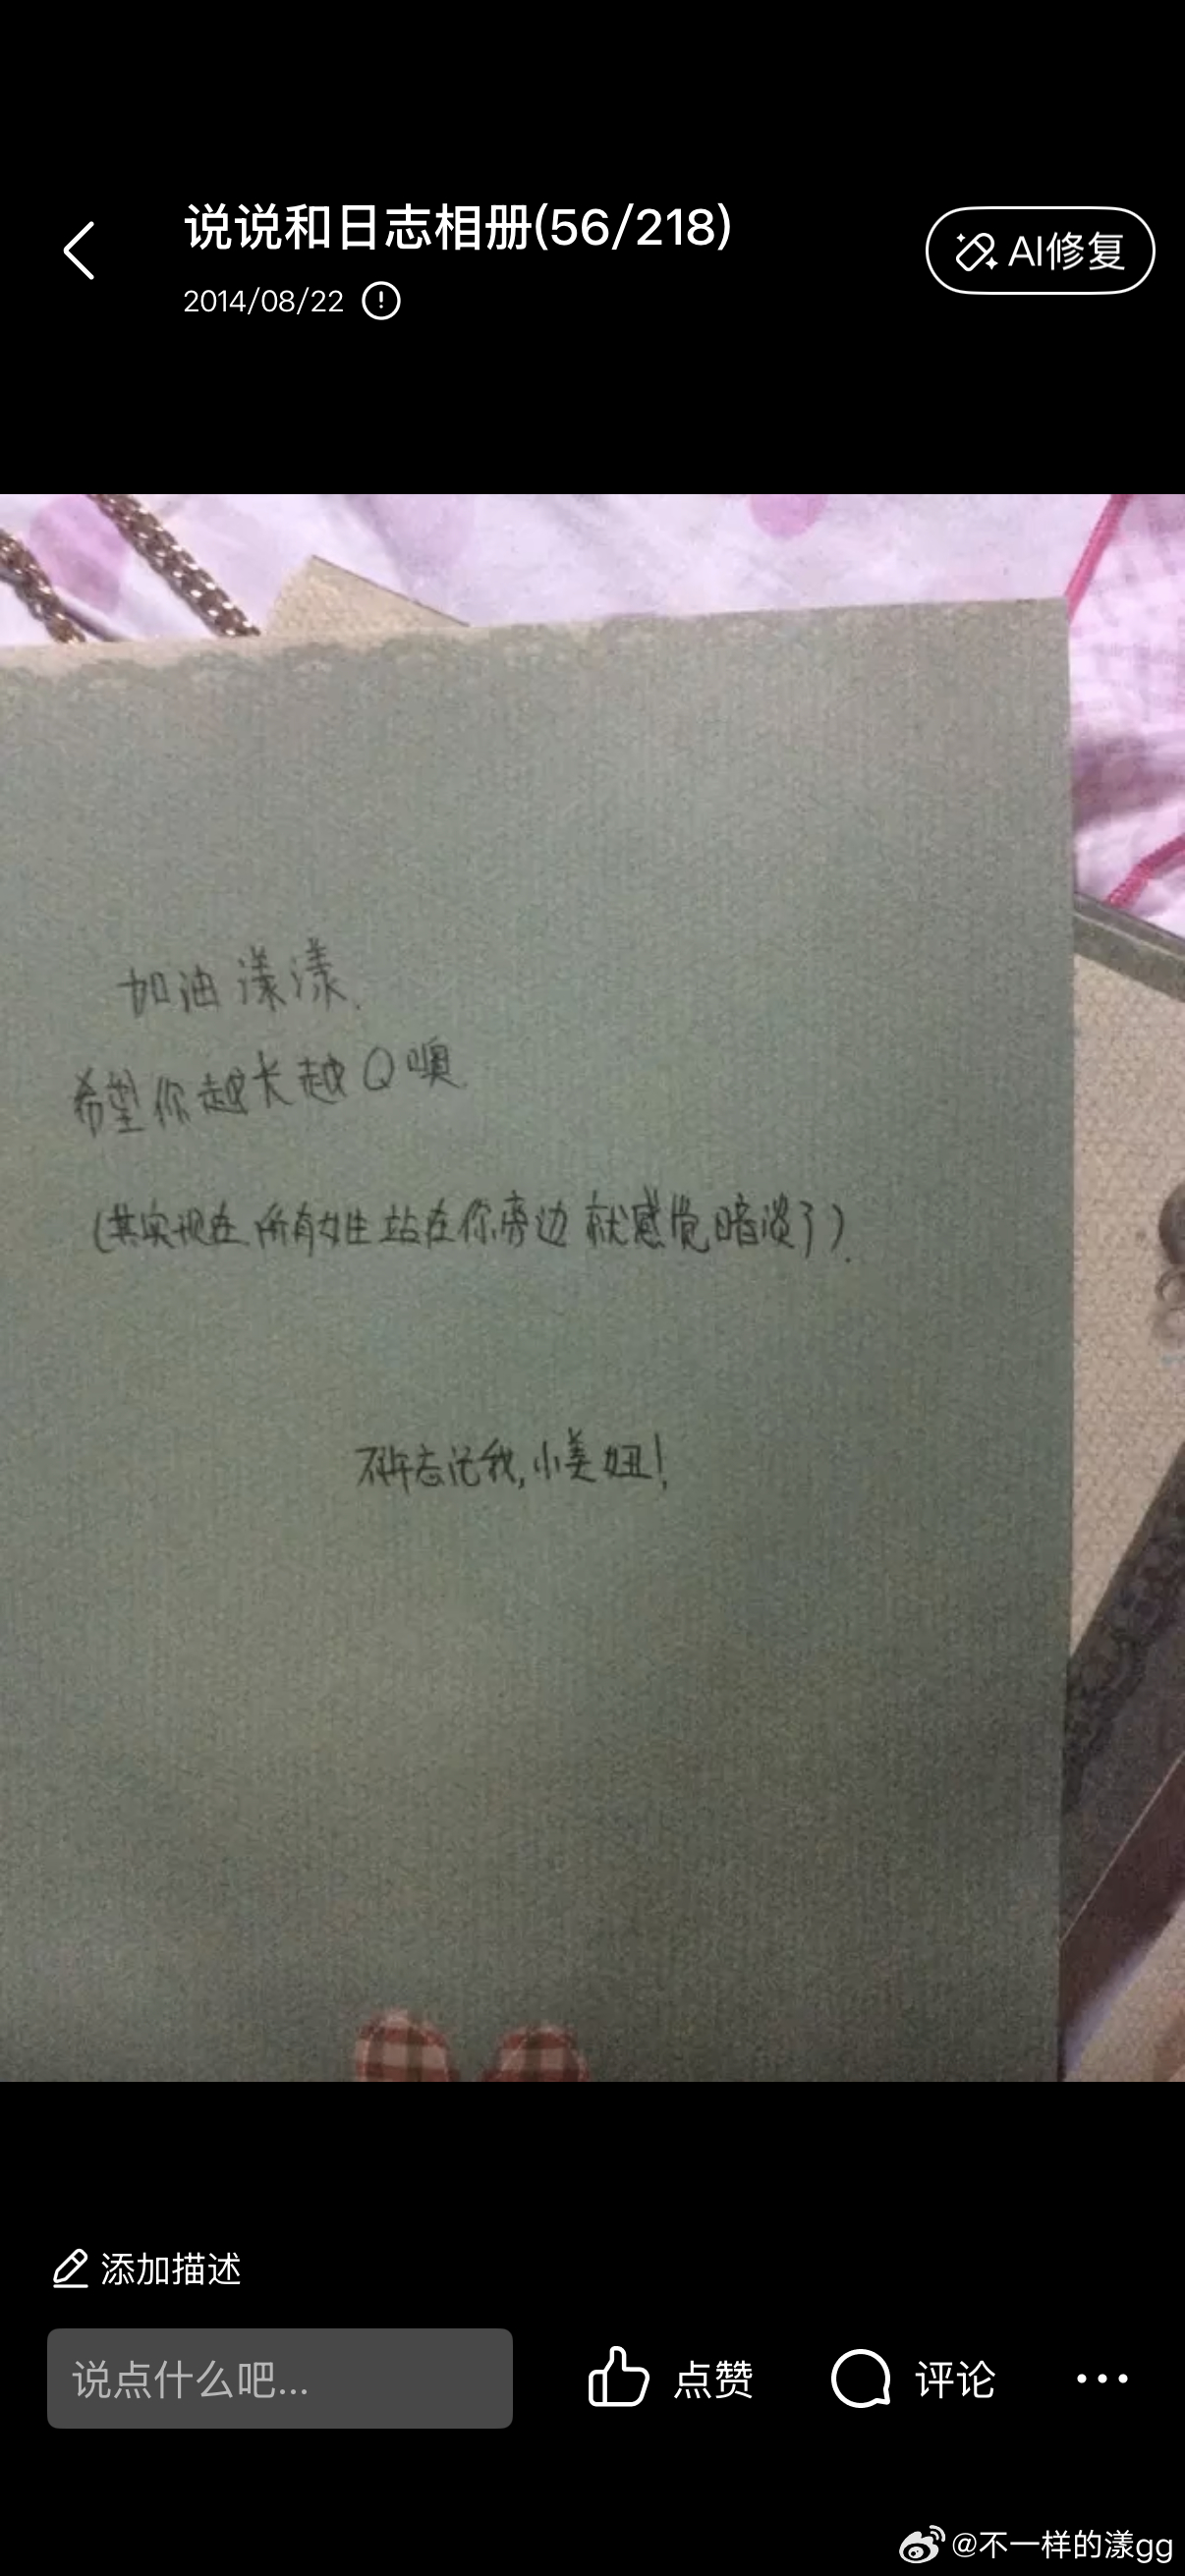 说说和日志相册(56/218)
2014/08/22
AI修复
加油漾漾.
希望你越长越Q噢.
(其实现在所有女生站在你旁边就感觉暗淡了).
不许忘记我,小美妞!
添加描述
说点什么吧...
点赞
评论
@不一样的漾gg